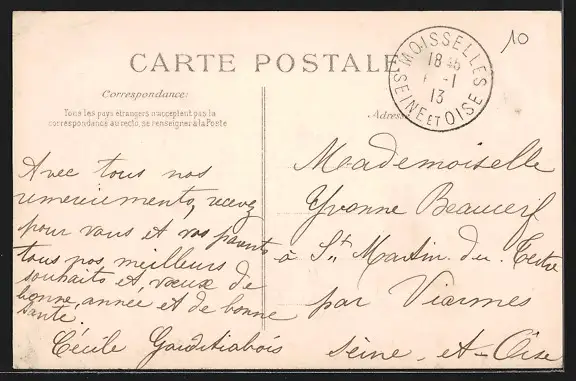 10
CARTE POSTALE
MOISSELLES
18 45
-1
13
SEINE ET OISE
Correspondance:
Tous les pays étrangers n'acceptent pas la
correspondance au recto, se renseigner à la Poste
Adresse
Avec tous nos
remerciements, recevez
pour vous et vos parents
tous nos meilleurs
souhaits et vœux de
bonne année et de bonne
santé.
Cécile
Mademoiselle
Yvonne Beaucerf
à St Martin du Tertre
par Viarmes
Seine-et-Oise